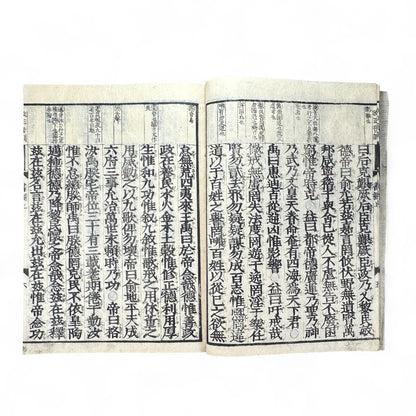 曰后克艱厥后臣克艱厥臣政乃乂黎民敏
德帝曰俞允若茲嘉言罔攸伏野無遺賢萬
邦咸寧稽于衆舍己從人不虐無告不廢困
窮惟帝時克○益曰都帝德廣運乃聖乃神
乃武乃文皇天眷命奄有四海為天下君○
禹曰惠迪吉從逆凶惟影響○益曰吁戒哉
儆戒無虞罔失法度罔遊于逸罔淫于樂任
賢勿貳去邪勿疑疑謀勿成百志惟熙罔違
道以干百姓之譽罔咈百姓以從己之欲無
怠無荒四夷來王禹曰於帝念哉德惟善政
政在養民水火金木土穀惟修正德利用厚
生惟和九功惟敘九敘惟歌戒之用休董之
用威勸之以九歌俾勿壞帝曰俞地平天成
六府三事允治萬世永賴時乃功○帝曰格
汝禹朕宅帝位三十有三載耄期倦于勤汝
惟不怠總朕師禹曰朕德罔克民不依皋陶
邁種德德乃降黎民懷之帝念哉念茲在茲釋
茲在茲名言茲在茲允出茲在茲惟帝念功